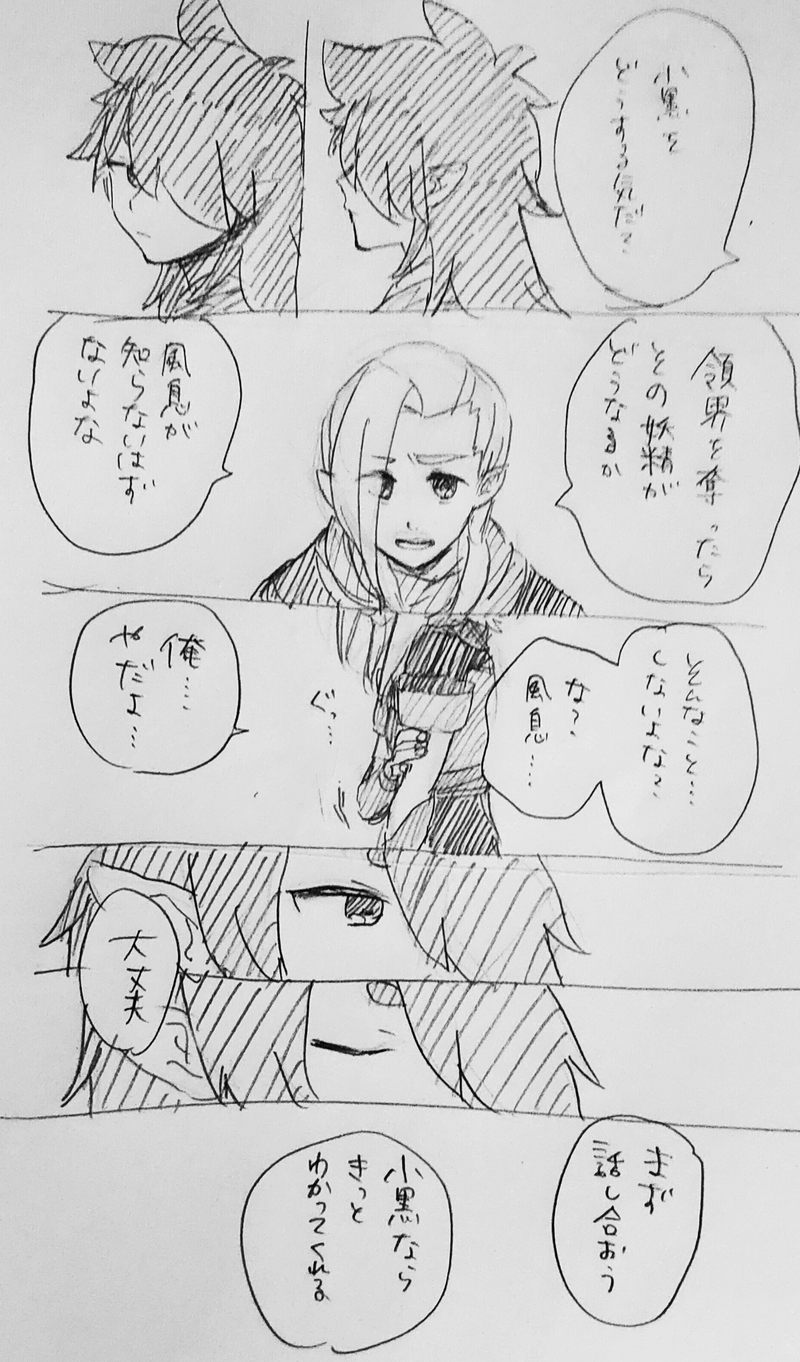 小黒を
どうする気だ?
領界を奪ったら
その妖精が
どうなるか
風息が
知らないはず
ないよな
そんなこと…
しないよな?
な?
風息…
ぐっ…
俺…
やだよ…
大丈夫
まず
話し合おう
小黒なら
きっと
わかってくれる